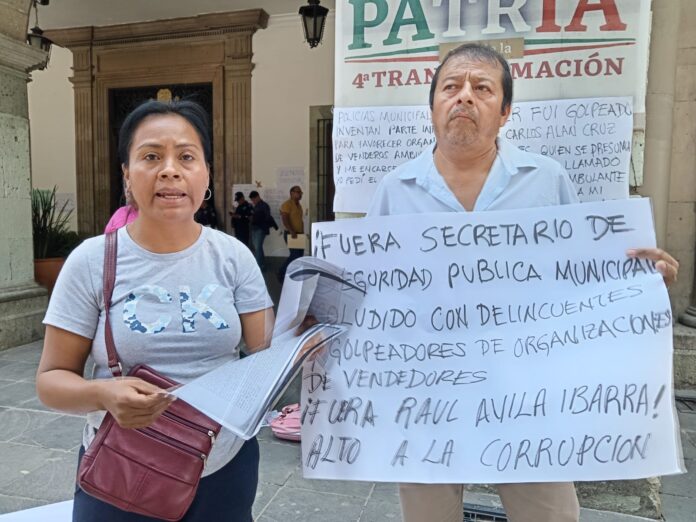 PATRIA
de la
4ª TRAN MACIÓN
POLICIAS MUNICIPAL ER FUI GOLPEADO
INVENTAN PARTE IN CARLOS ALAN CRUZ
PARA FAVORECER ORGAN ES QUIEN SE PRESUM
DE VENDEROS AMBU LLAMADO
Y ME ENCARC
YO PEDÍ EL A MI
¡FUERA SECRETARIO DE
SEGURIDAD PUBLICA MUNICIPAL
LUDIDO CON DELINCUENTES
GOLPEADORES DE ORGANIZACIONES
DE VENDEDORES
¡FUERA RAUL AVILA IBARRA!
ALTO A LA CORRUPCION
CK